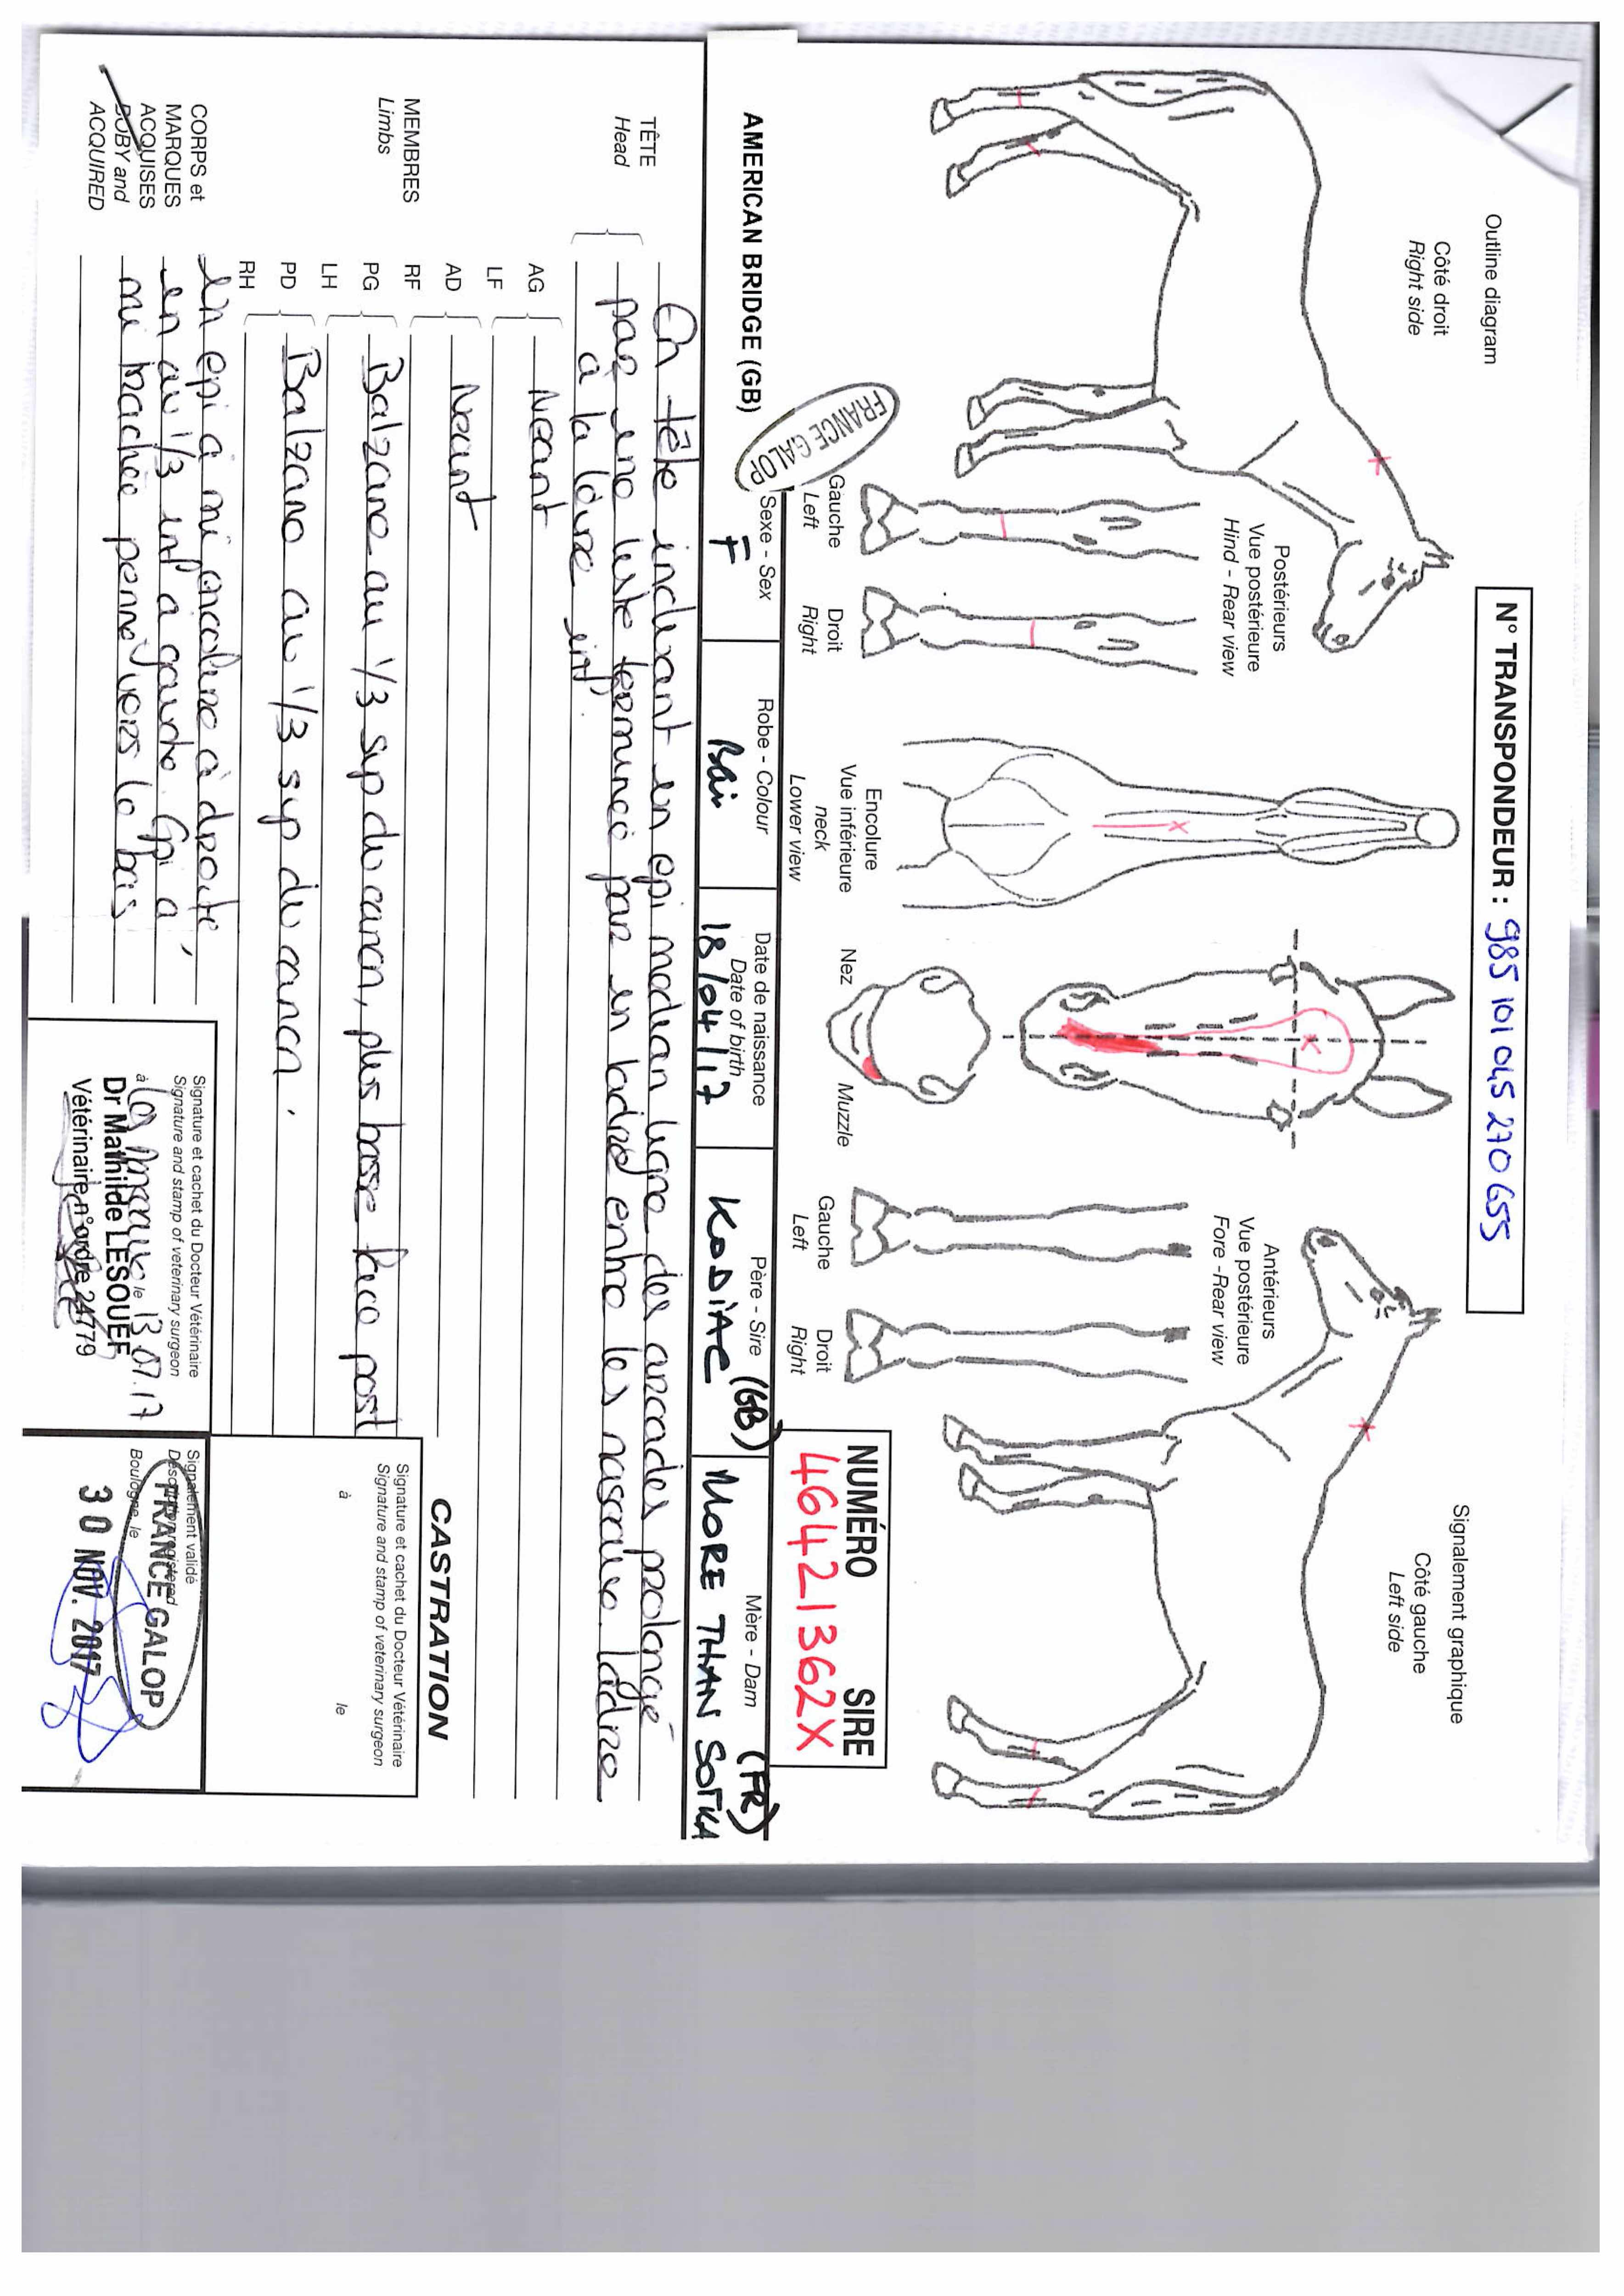 Outline diagram
Côté droit
Right side
N° TRANSPONDEUR : 985 101 045 270 655
Signalement graphique
Côté gauche
Left side
Postérieurs
Vue postérieure
Hind - Rear view
Gauche
Left
Droit
Right
Encolure
Vue inférieure
neck
Lower view
Nez
Muzzle
Antérieurs
Vue postérieure
Fore - Rear view
Gauche
Left
Droit
Right
NUMÉRO SIRE
46421362X
FRANCE GALOP
AMERICAN BRIDGE (GB)
Sexe - Sex
F
Robe - Colour
Bai
Date de naissance
Date of birth
18/04/17
Père - Sire
KODIAC (GB)
Mère - Dam
MORE THAN SOTKA (FR)
TÊTE
Head
En tête incluant un epi median ligne des arcades prolongé
par une liste terminée par un ladre entre les naseaux. Ladre
à la lèvre inf.
MEMBRES
Limbs
AG
LF
Neant
AD
RF
Neant
PG
LH
Balzane au 1/3 sup du canon, plus basse face post
PD
RH
Balzane au 1/3 sup du canon.
CORPS et
MARQUES
ACQUISES
BOBY and
ACQUIRED
Un epi a mi encolure à droite,
un au 1/3 inf a gauche. Epi a
mi trachée penné vers le bas
CASTRATION
Signature et cachet du Docteur Vétérinaire
Signature and stamp of veterinary surgeon
à le
Signature et cachet du Docteur Vétérinaire
Signature and stamp of veterinary surgeon
à le 13.07.17
Dr Mathilde LESOUEF
Vétérinaire n° ordre 24779
Signalement validé
Description registered
Boulogne, le
FRANCE GALOP
30 NOV. 2017